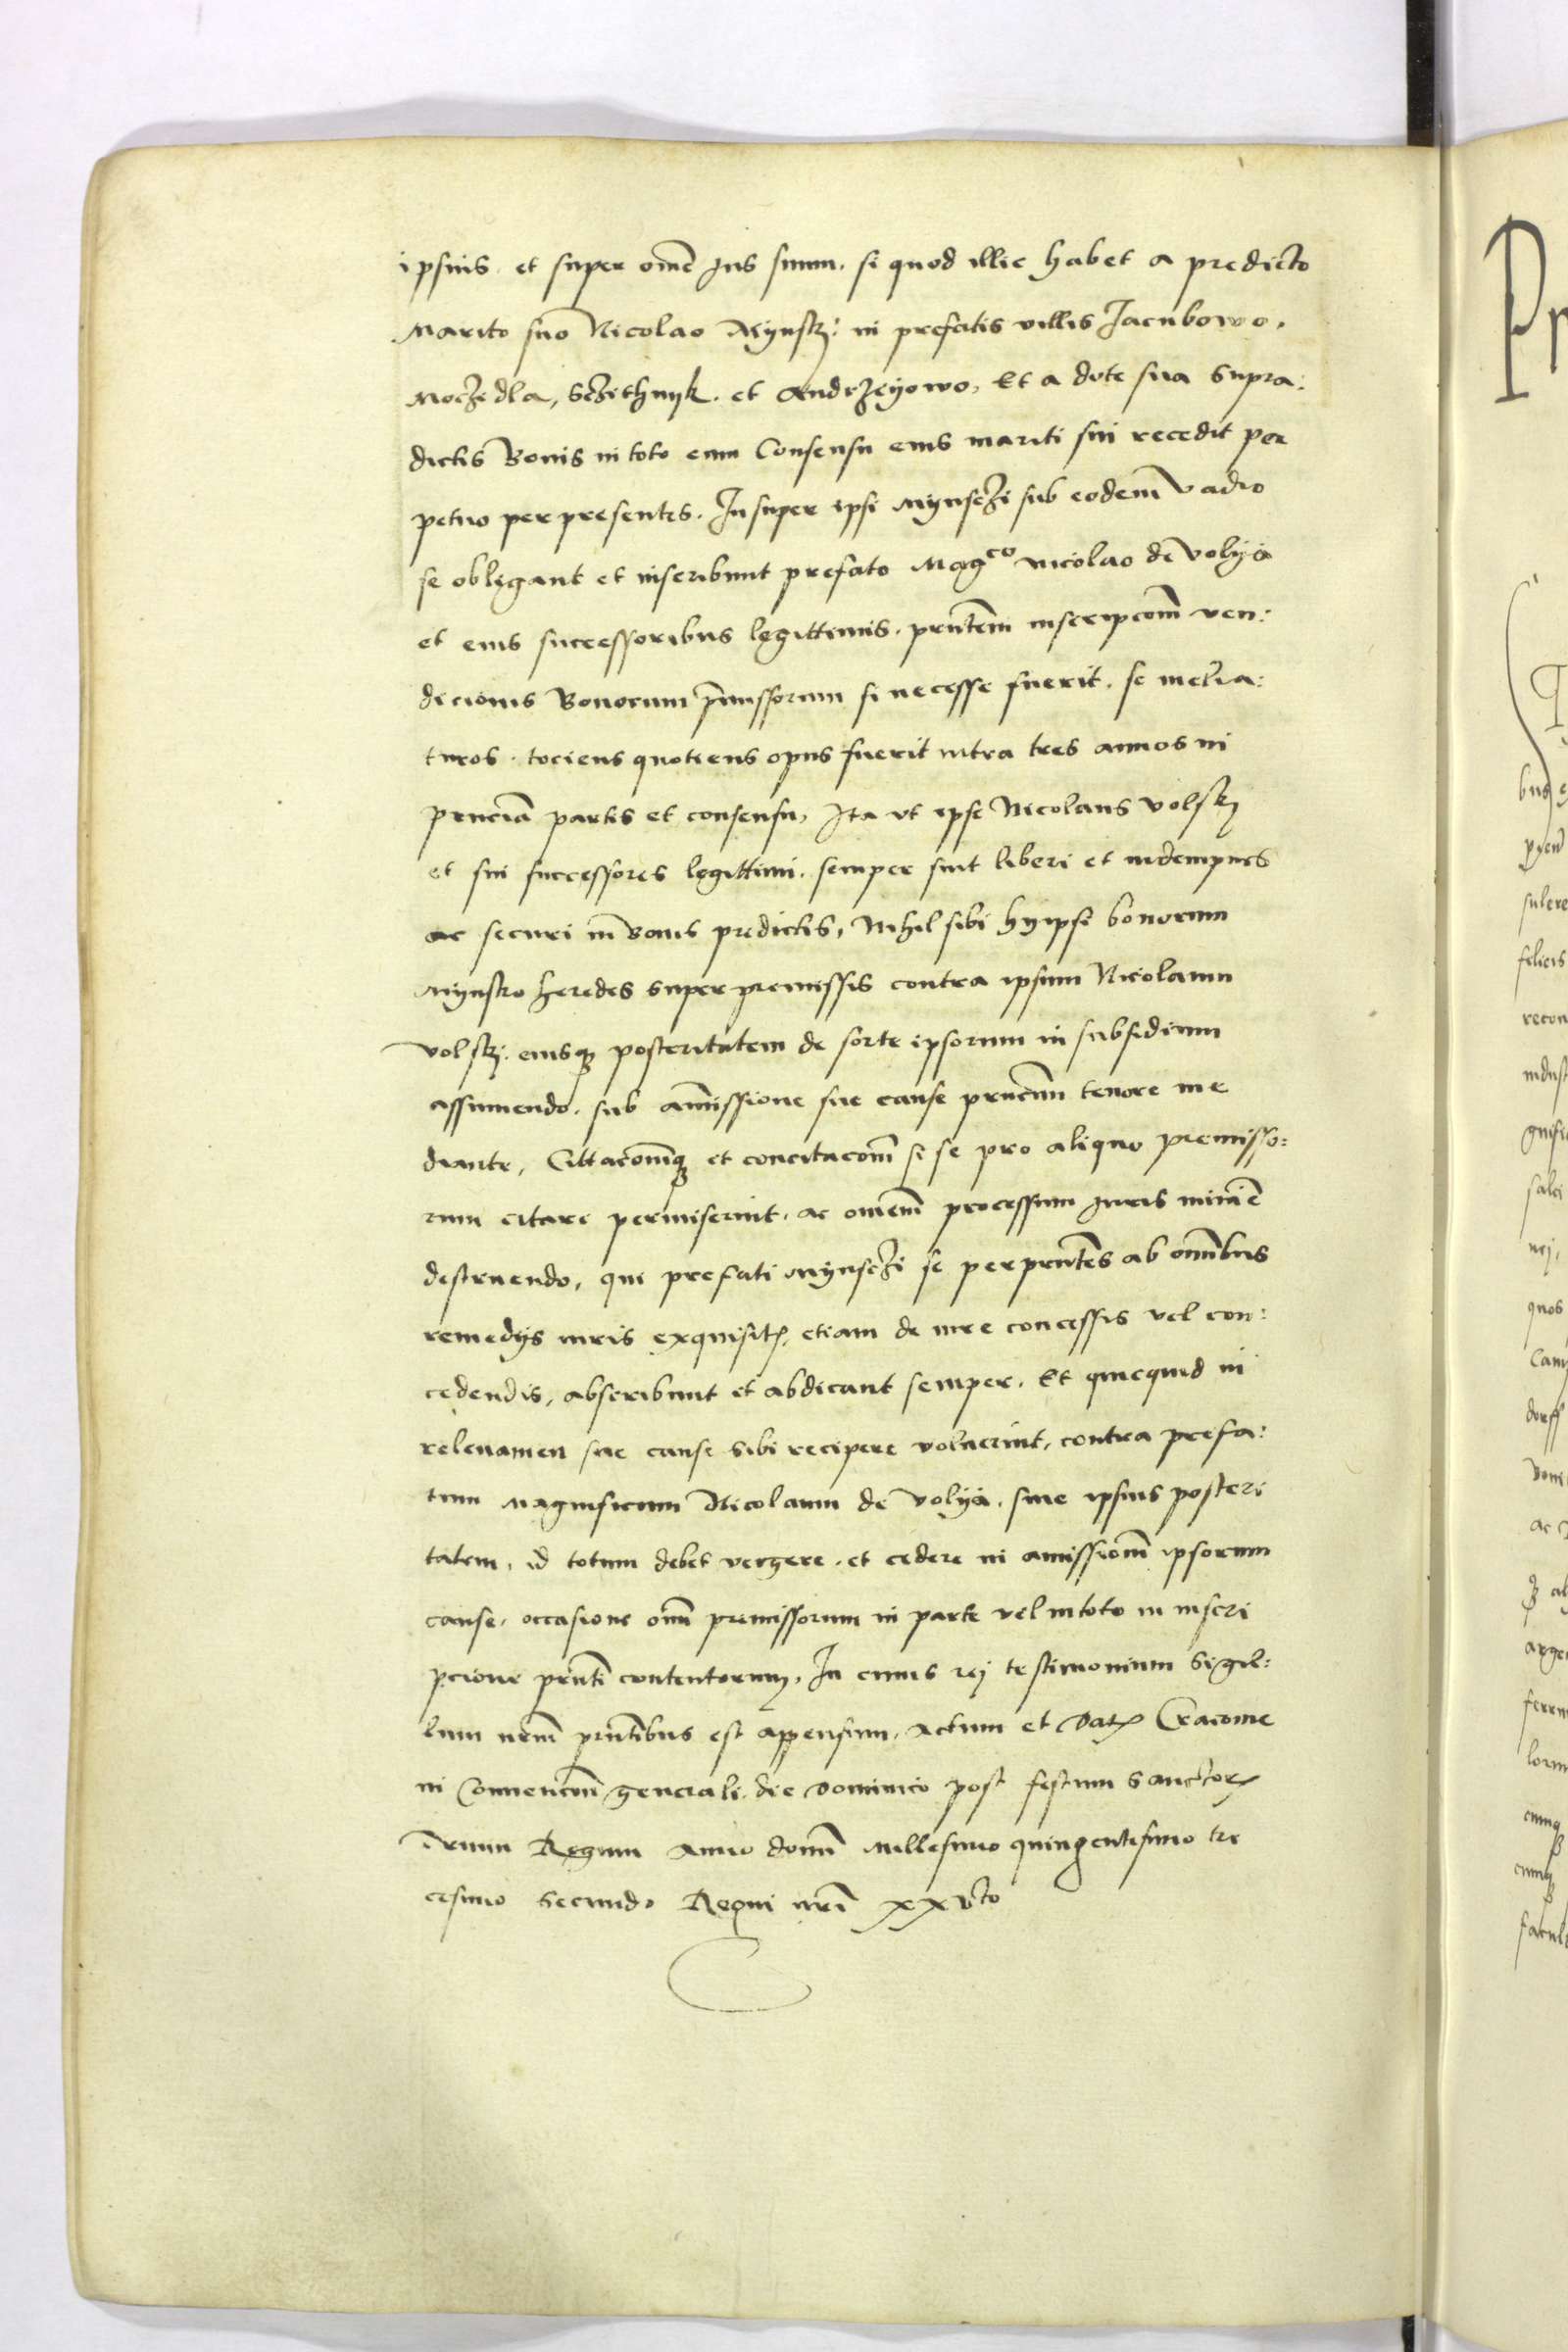 ipsius. et super om̄e jus suum. si quod illic habet a predicto
Marito suo Nicolao Mijnskj: in prefatis villis Jacubowo.
Moczżedla, Sczżithnijk. et Andrzeijowo, Et a dote sua supra:
dictis Bonis in toto cum Consensu eius mariti sui recedit per
petuo per presentes. Insuper ipsi Mijnsczżi sub eodem vadio
se obligant et inscribunt prefato Magco Nicolao de Volija
et eius successoribus legittimis. pn̄tem inscripcom̄ ven:
dicionis Bonorum p̄missorum si necesse fuerit. se melia:
turos. tociens quotiens opus fuerit intra tres annos in
pn̄cia partis et consensu, Ita vt ipse Nicolaus Volskj
et sui successores legittimi. semper sint liberi et indempnes
ac securi in Bonis predictis, Nihil sibi hij ipsi bonorum
Mijnsko heredes super premissis contra ipsum Nicolaum
Volskj. eiusq posteritatem de sorte ipsorum in subsidium
assumendo. sub amissione sue cause pn̄cium tenore me
diante, Cittacom̄q et concitacom̄ si se pro aliquo premisso:
rum citari permiserint. ac omnem processum juris minime
destruendo, qui prefati Mijnsczżi se per pn̄tes ab omībus
remedijs iuris exquisit. etiam de iure concessis vel con:
cedendis, abscribunt et abdicant semper. Et quicquid in
releuamen sue cause sibi recipere voluerint, contra prefa:
tum Magnificum Nicolaum de Volija. siue ipsius posteri
tatem, id totum debet vergere. et cedere in amissiom̄ ipsorum
cause. occasione om̄ premissorum in parte vel in toto in inscri
pcione pn̄ti contentorum. In cuius rej testimonium Sigil:
lum nr̄m pn̄tibus est appensum. Actum et Dat Cracouie
in Conuencōne generali. die Dominico post festum Sanctor
Trium Regum Anno domī Millesimo quingentesimo tri
cesimo Secundo Regni nr̄i xxvto